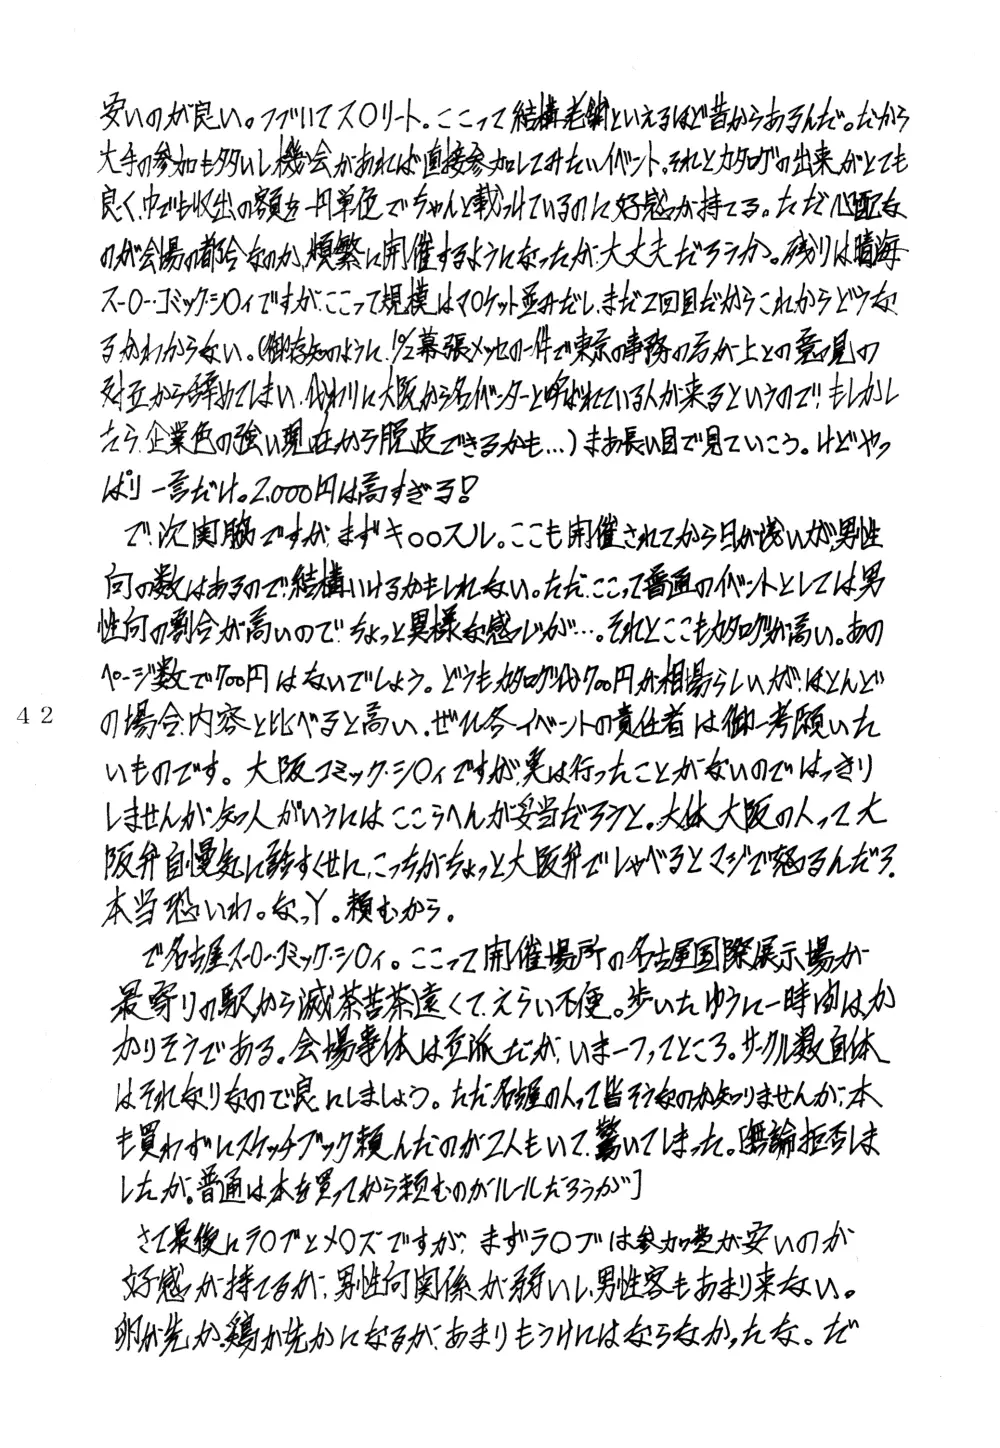 安いのが良い。つづいてス〇リート。ここって結構老舗といえるほど昔からあるんだ。だから
大手の参加も多いし機会があれば直接参加してみたいイベント。それとカタログの出来がとても
良く、中でも収出の額を一円単色でちゃんと載っけているのに好感が持てる。ただ心配な
のが会場の都合なのか、頻繁に開催するようになったが、大丈夫だろうか。残りは晴海
ス-〇-・コミック・シ〇ィですが、ここって規模はマ〇ケット並みだし、まだ2回目だからこれからどうな
るかわからない。(御存知のように、幕張メッセの一件で東京の事務の方が上との意見の
対立から辞めてしまい、代わりに大阪から名イベンターと呼ばれている人が来るというので!もしかし
たら、企業色の強い現在から脱皮できるかも…)まあ長い目で見ていこう。けどやっ
ぱり一言だけ。2,000円は高すぎる!
で、次関脇ですが、まずキ〇〇スル。ここも開催されてから日が浅いが、男性
向の数はあるので、結構いけるかもしれない。ただ、ここって普通のイベントとしては男
性向の割合が高いので、ちょっと異様な感じが…。それとここもカタログが高い。あの
ページ数で700円はないでしょう。どうもカタログ代700円が相場らしいが、ほとんど
の場合、内容と比べると高い。ぜひ各イベントの責任者は御一考願いた
いものです。大阪コミック・シ〇ィですが、実は行ったことがないのではっきり
しませんが、知人がいうにはここらへんが妥当だろうと。大体大阪の人って大
阪弁自慢気に話すくせに、こっちがちょっと大阪弁でしゃべるとマジで怒るんだろ。
本当恐いわ。なっY。頼むから。
で名古屋ス-〇-・コミック・シ〇ィ。ここって開催場所の名古屋国際展示場が
最寄りの駅から滅茶苦茶遠くて、えらい不便。歩いたゆうに一時間はか
かりそうである。会場事体は立派だが、いま一つってところ。サークル数自体
はそれなりなので良にしましょう。ただ名古屋の人って皆そうなのか知りませんが、本
も買わずにスケッチブック頼んだのが2人もいて、驚いてしまった。[無論拒否しま
したが。普通は本を買ってから頼むのがルールだろうが]
さて最後にラ〇ブとメ〇ズですが、まずラ〇ブは参加費が安いのが
好感が持てるが、男性向関係が弱いし、男性客もあまり来ない。
卵が先か、鶏が先かになるが、あまりもうけにはならなかったな。だ
42